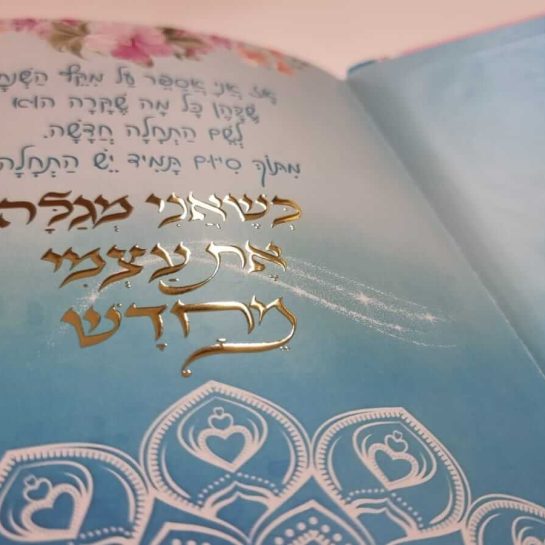 אָז אֲנִי אֲסַפֵּר עַל מִקֵּץ
שֶׁבָּהֶן כָּל מָה שֶׁקָּרָה הוּא
לְשֵׁם הַתְחָלָה חֲדָשָׁה.
מִתּוֹךְ סִיּוּם תָּמִיד יֵשׁ הַתְחָלָה
כְּשֶׁאֲנִי מְגַלָּה
אֶת עַצְמִי
מֵחָדָשׁ